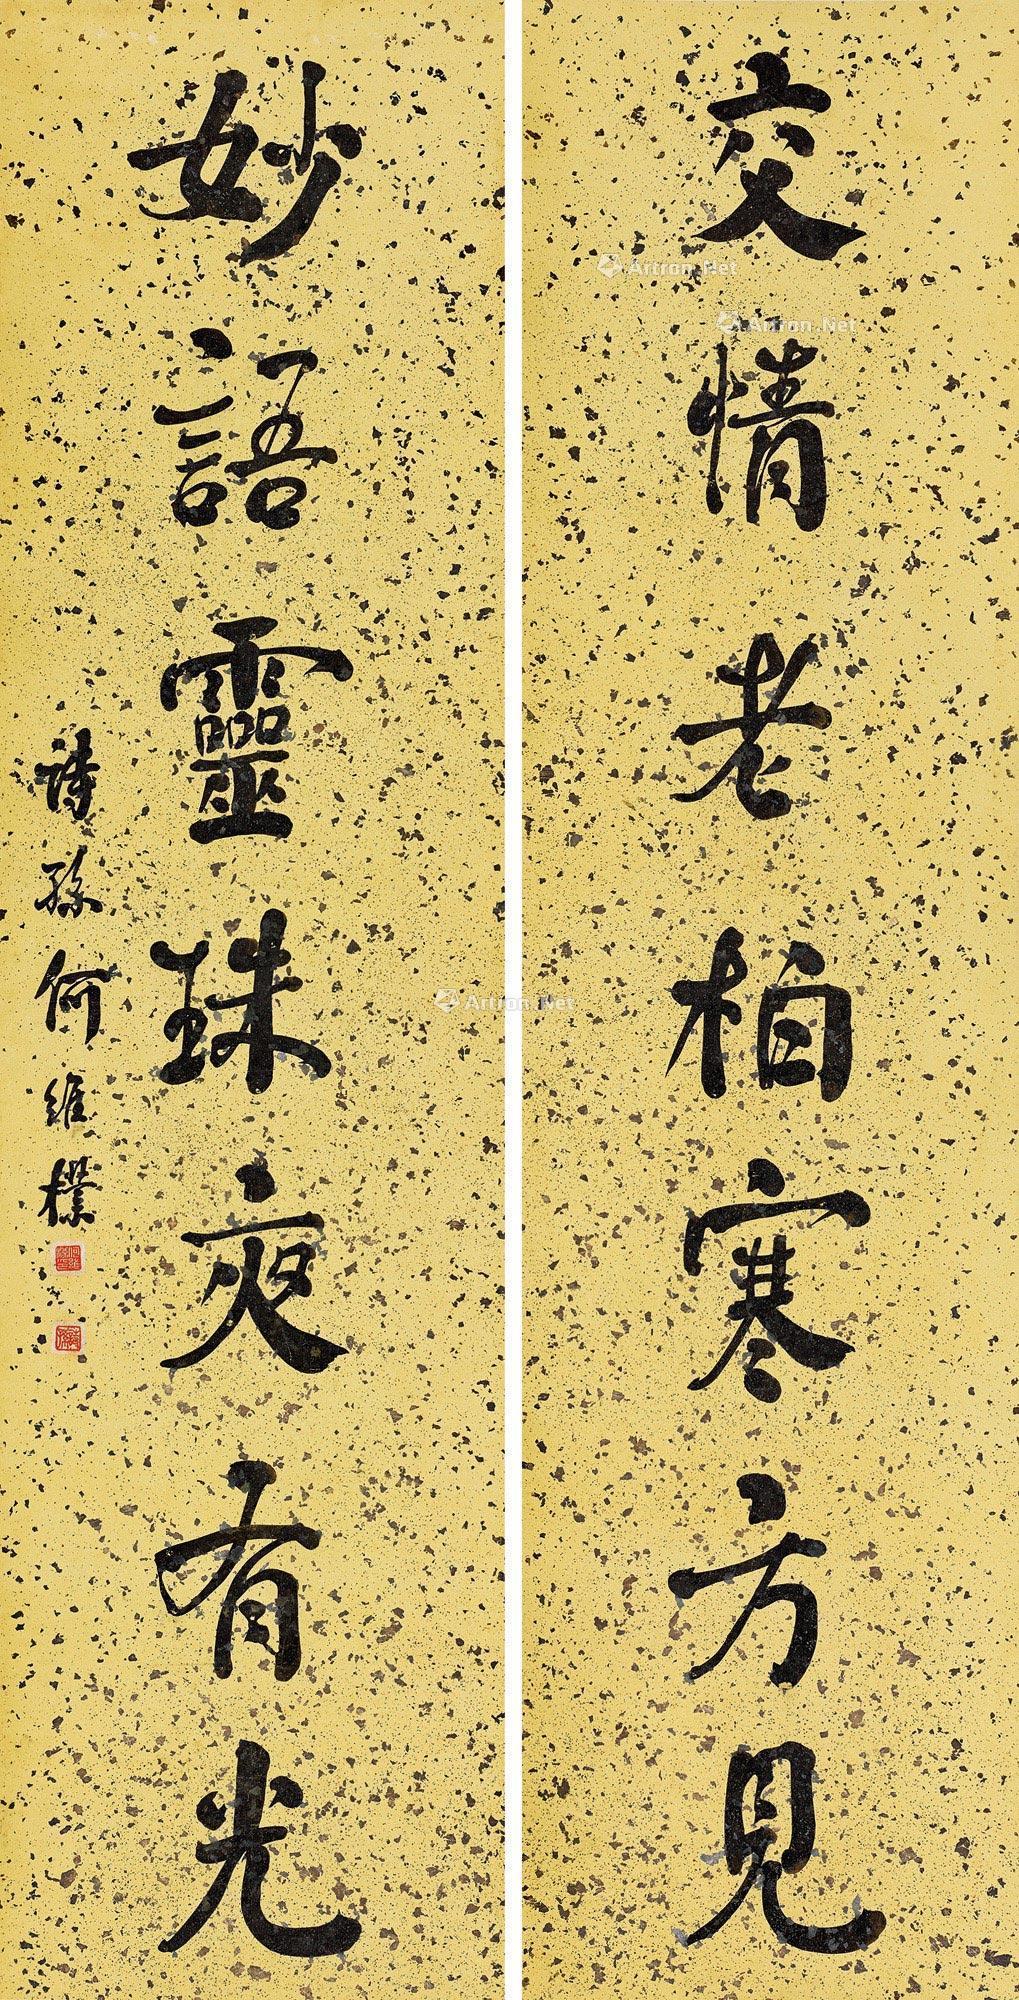 交情老柏寒方見
妙語靈珠夜有光
詩孫何維樸
Artron.Net
Artron.Net
Artron.Net